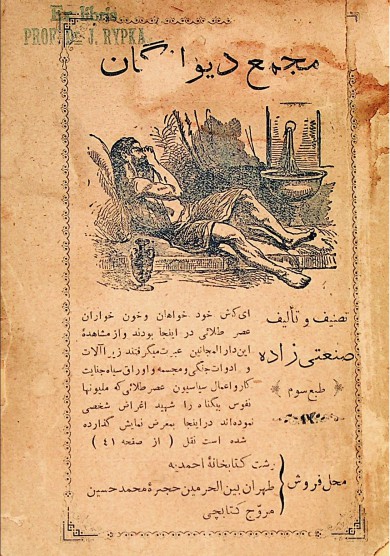 Ex libris
PROF. Dr. J. RYPKA
مجمع دیوانگان
تصنیف و تألیف
صنعتی زاده
طبع سوم
ای کاش خود خواهان وخون خواران
عصر طلائی در اینجا بودند و از مشاهدهٔ
این دارالمجانین عبرت میگرفتند زیرا آلات
و ادوات جنگی ومجسمه واوراق سیاه جنایت
کار و اعمال سیاسیون عصر طلائی که ملیونها
نفوس بیگناه را شهید اغراض شخصی
نموده اند در اینجا بمعرض نمایش گذارده
شده است نقل ( از صفحه ۴۱ )
محل فروش
رشت کتابخانهٔ احمدیه
طهران بین الحرمین حجرهٔ محمد حسین
مروّج کتابچی